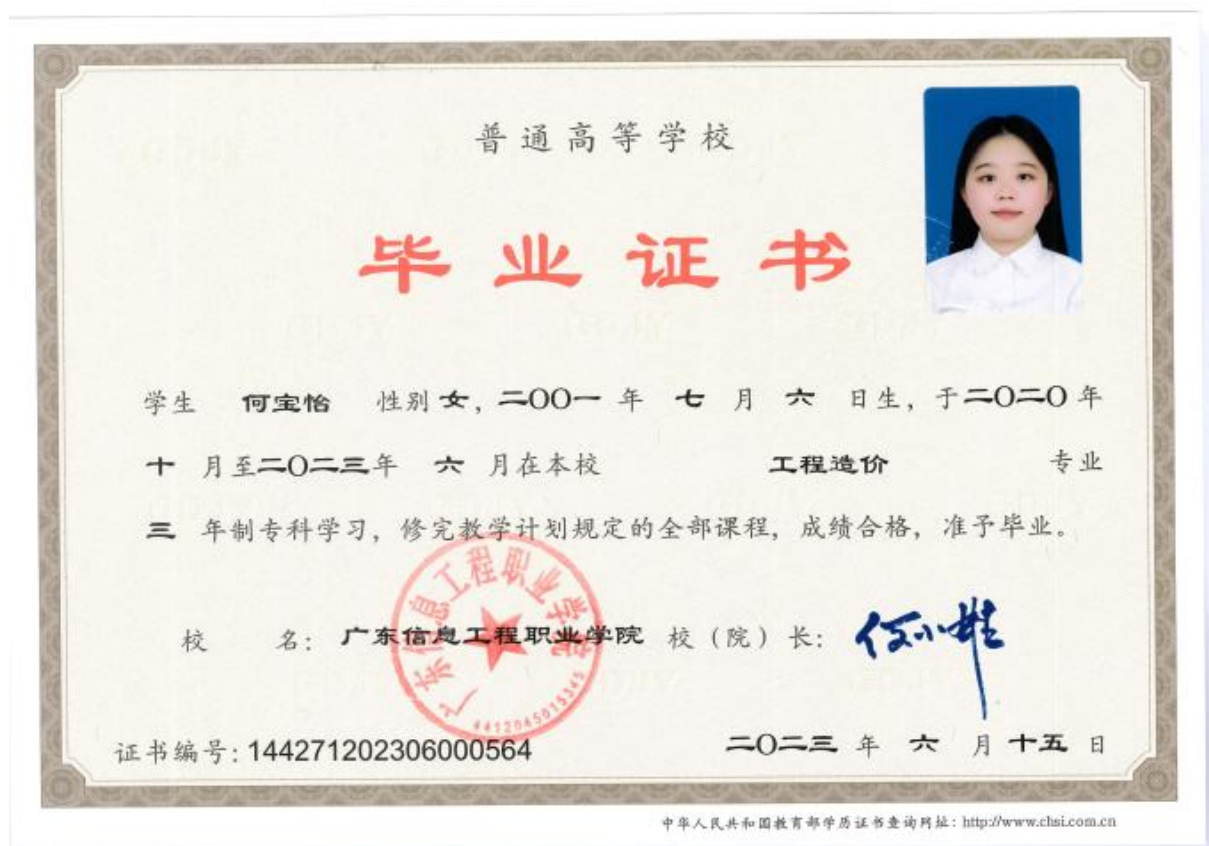 普通高等学校
毕业证书
学生 何宝怡 性别 女，二〇〇一 年 七 月 六 日生，于二〇二〇 年
十 月至二〇二三年 六 月在本校 工程造价 专业
三 年制专科学习，修完教学计划规定的全部课程，成绩合格，准予毕业。
校 名：广东信息工程职业学院 校（院）长：何小雄
广东信息工程职业学院
4412045015345
证书编号：144271202306000564 二〇二三 年 六 月 十五 日
中华人民共和国教育部学历证书查询网址：http://www.chsi.com.cn